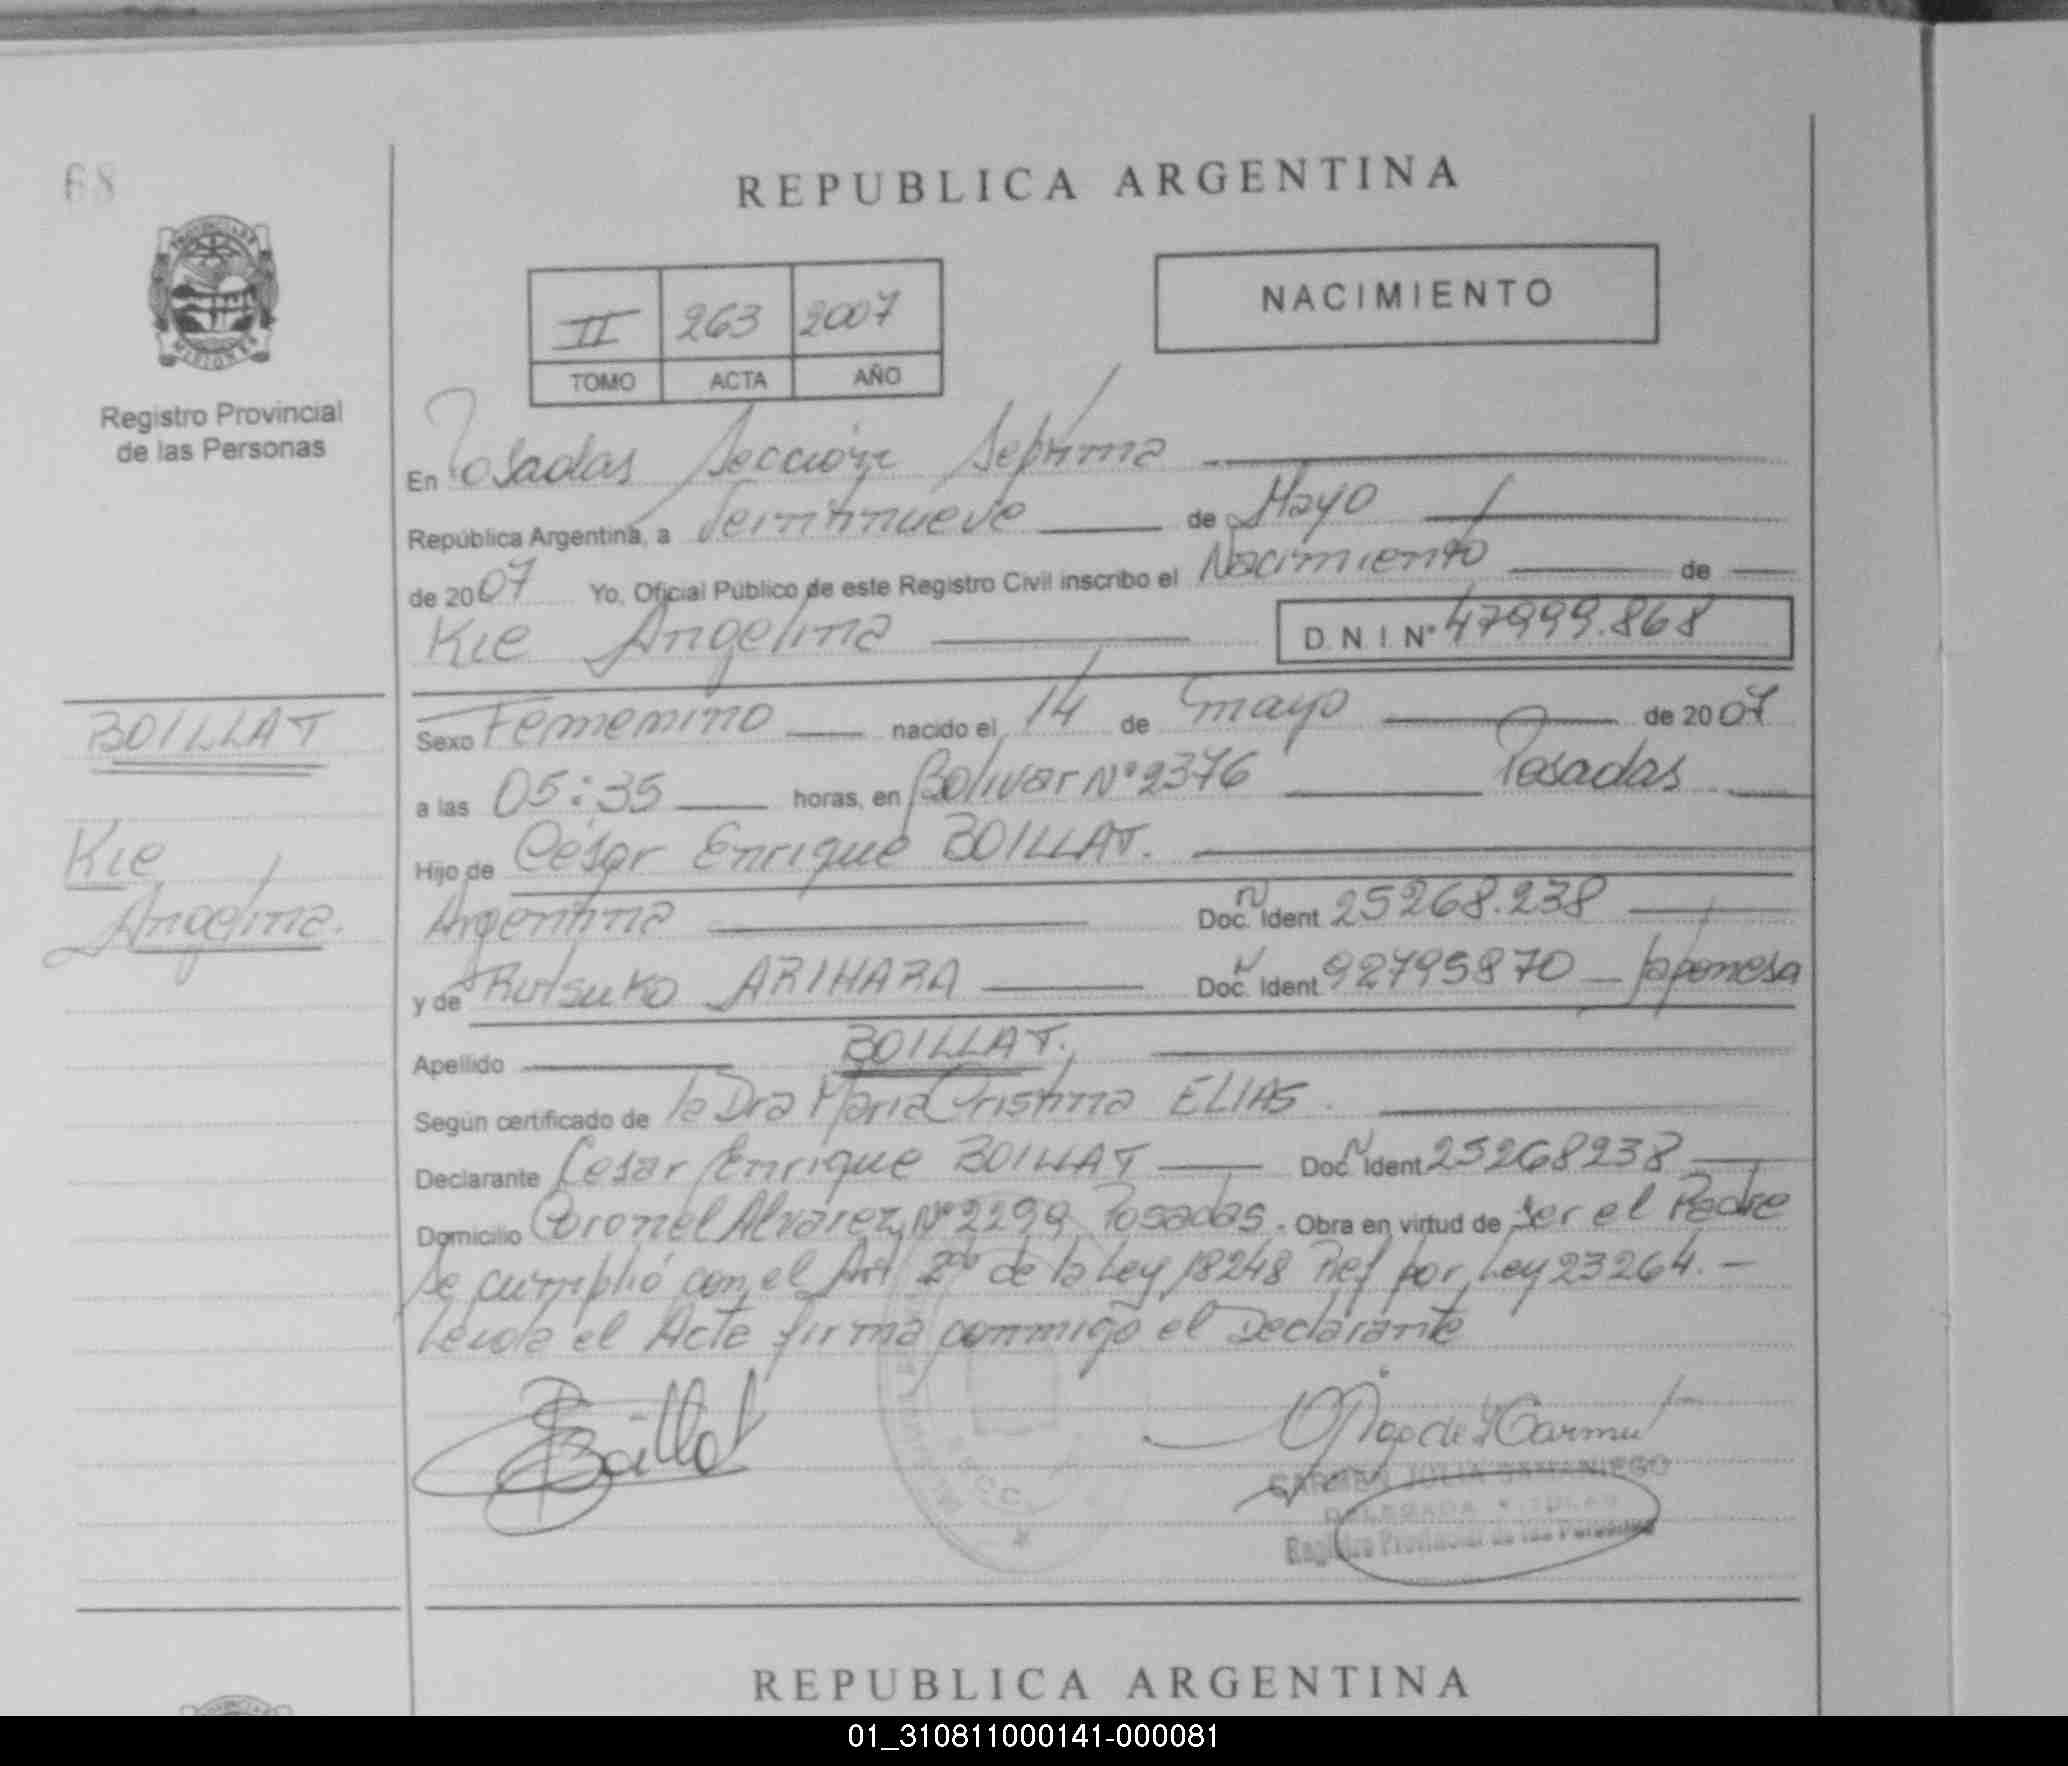 68
REPUBLICA ARGENTINA
PROVINCIA DE
MISIONES
Registro Provincial
de las Personas
II 263 2007
TOMO ACTA AÑO
NACIMIENTO
En Posadas Sección Séptima
República Argentina, a Veintinueve de Mayo
de 2007 Yo, Oficial Público de este Registro Civil inscribo el Nacimiento de
Kie Angelina D.N.I. Nº 47999.868
BOILLAT
Sexo Femenino nacido el 14 de mayo de 2007
a las 05:35 horas, en Bolivar Nº 2376 Posadas
Kie
Angelina.
Hijo de César Enrique BOILLAT.
Argentina Doc. Ident 25268.238
y de Rutsuko ARIHARA Doc. Ident 92795870 Japonesa
Apellido BOILLAT.
Según certificado de la Dra Maria Cristina ELIAS.
Declarante Cesar Enrique BOILLAT Doc. Ident 25268238
Domicilio Coronel Alvarez Nº 2299 Posadas. Obra en virtud de ser el Padre
Se cumplió con el Art 2do de la Ley 18248 Ref por Ley 23264. -
Leida el Acta firma conmigo el Declarante
Boillat
CARMEN JULIA SAMANIEGO
DELEGADA TITULAR
Registro Provincial de las Personas
REPUBLICA ARGENTINA
01_310811000141-000081